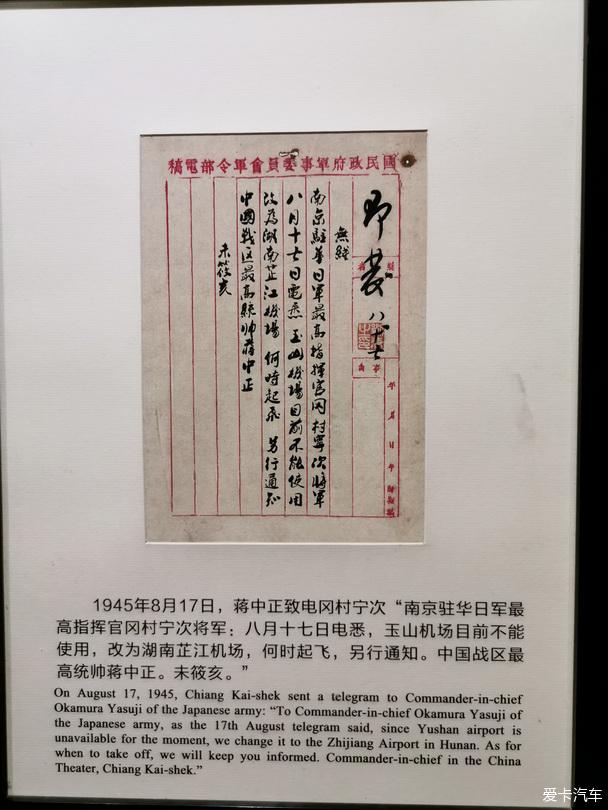 國民政府軍事委員會軍令部電稿
即發 八、十七
無綫
南京駐華日軍最高指揮官冈村寧次將軍
八月十七日電悉 玉山機場目前不能使用
改為湖南芷江機場 何時起飛 另行通知
中國战区最高統帅蒋中正
未筱亥
年 月 日 午 時
1945年8月17日，蒋中正致电冈村宁次“南京驻华日军最
高指挥官冈村宁次将军：八月十七日电悉，玉山机场目前不能
使用，改为湖南芷江机场，何时起飞，另行通知。中国战区最
高统帅蒋中正。未筱亥。”
On August 17, 1945, Chiang Kai-shek sent a telegram to Commander-in-chief
Okamura Yasuji of the Japanese army: “To Commander-in-chief Okamura Yasuji of
the Japanese army, as the 17th August telegram said, since Yushan airport is
unavailable for the moment, we change it to the Zhijiang Airport in Hunan. As for
when to take off, we will keep you informed. Commander-in-chief in the China
Theater, Chiang Kai-shek.”
爱卡汽车